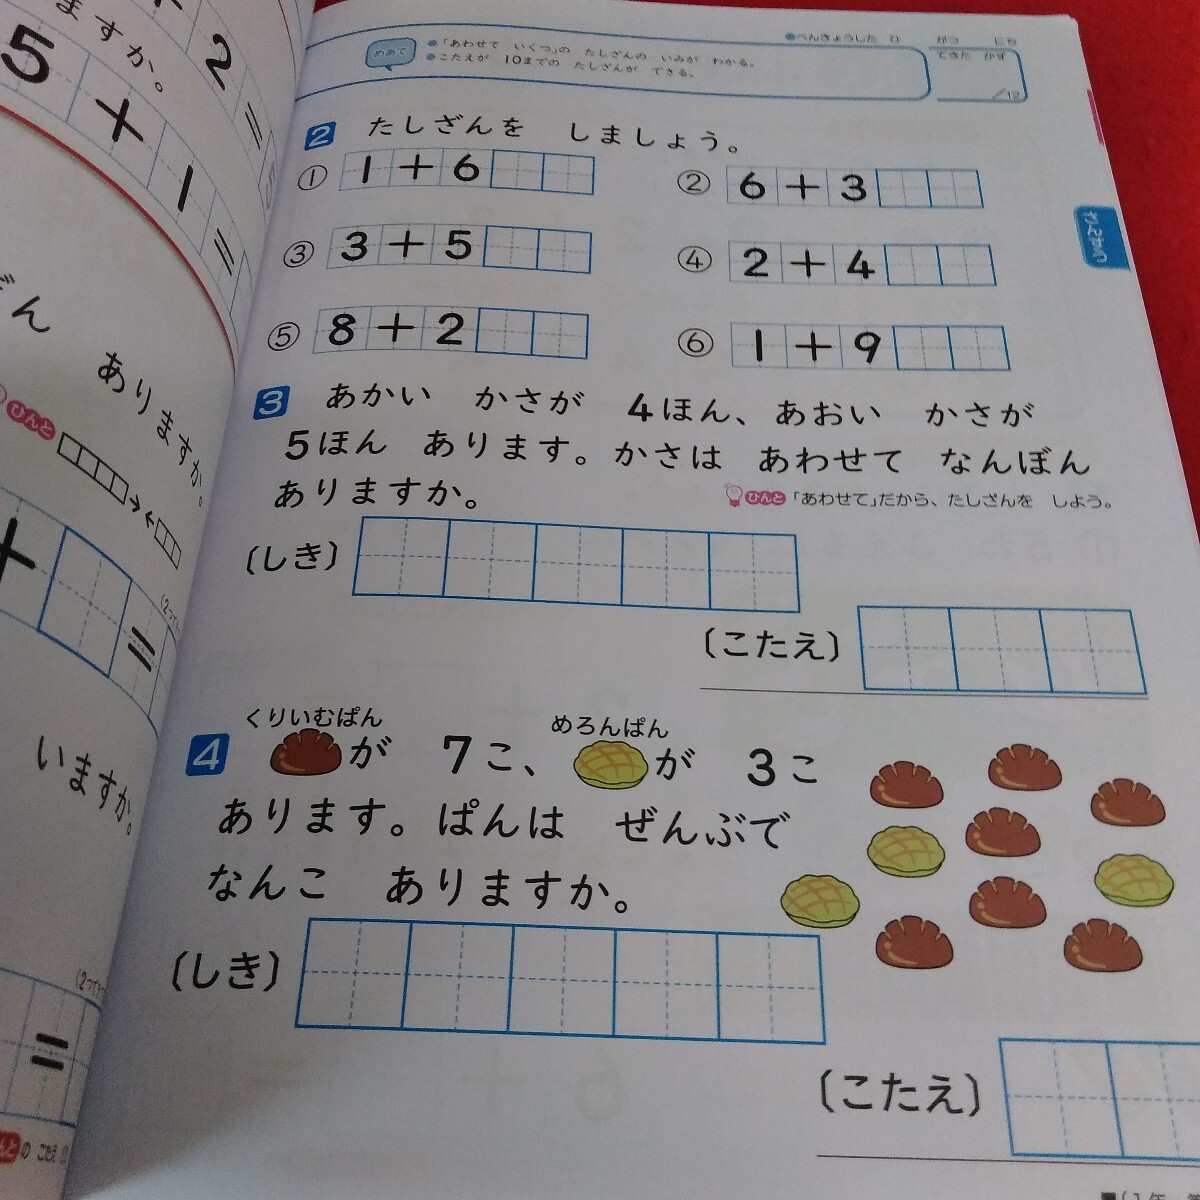 2=
ますか。
5+1=
ん
ありますか。
ひんと
+ =
いますか。
=
の こたえ
●べんきょうした ひ がつ にち
めあて
●「あわせて いくつ」の たしざんの いみが わかる。
●こたえが 10までの たしざんが できる。
できた かず
/12
さんすう
2 たしざんを しましょう。
① 1+6
② 6+3
③ 3+5
④ 2+4
⑤ 8+2
⑥ 1+9
3 あかい かさが 4ほん、あおい かさが
5ほん あります。かさは あわせて なんぼん
ありますか。
ひんと 「あわせて」だから、たしざんを しよう。
(しき)
(こたえ)
くりいむぱん めろんぱん
4 が 7こ、 が 3こ
あります。ぱんは ぜんぶで
なんこ ありますか。
(しき)
(こたえ)